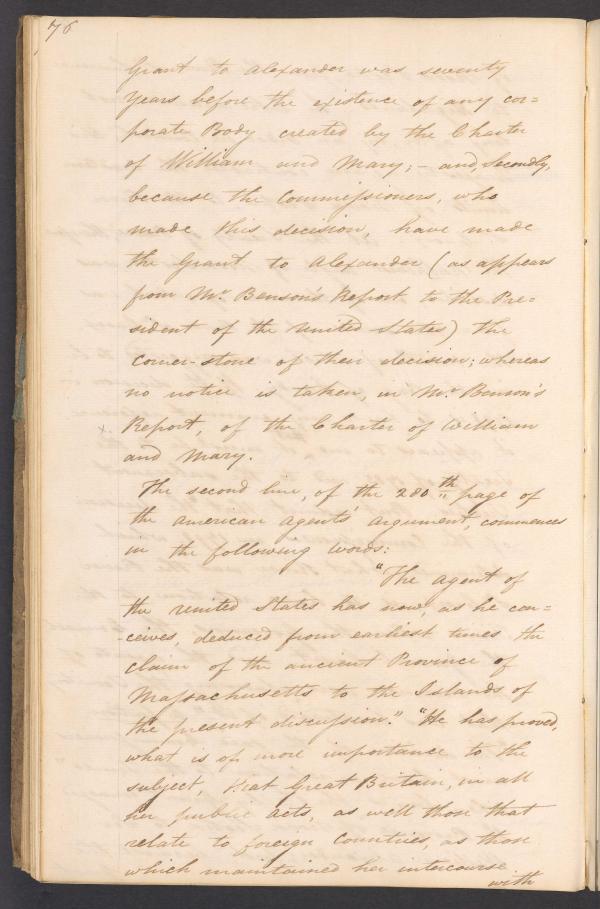 76
Grant to Alexander was seventy
years before the existence of any cor=
porate Body created by the Charter
of William and Mary; – and, Secondly,
because the Commissioners, who
made this decision, have made
the Grant to Alexander (as appears
from Mr. Benson's Report to the Pre=
sident of the United States) the
corner-stone of their decision; whereas
no notice is taken, in Mr. Benson's
Report, of the Charter of William
and Mary.
The second line, of the 280th page of
the American agents' argument, commences
in the following words:
"The agent of
the United States has now, as he con=
ceives, deduced from earliest times the
claim of the ancient Province of
Massachusetts to the Islands of
the present discussion." "He has proved,
what is of more importance to the
subject, that Great Britain, in all
her public acts, as well those that
relate to foreign Countries, as those
which maintained her intercourse
with